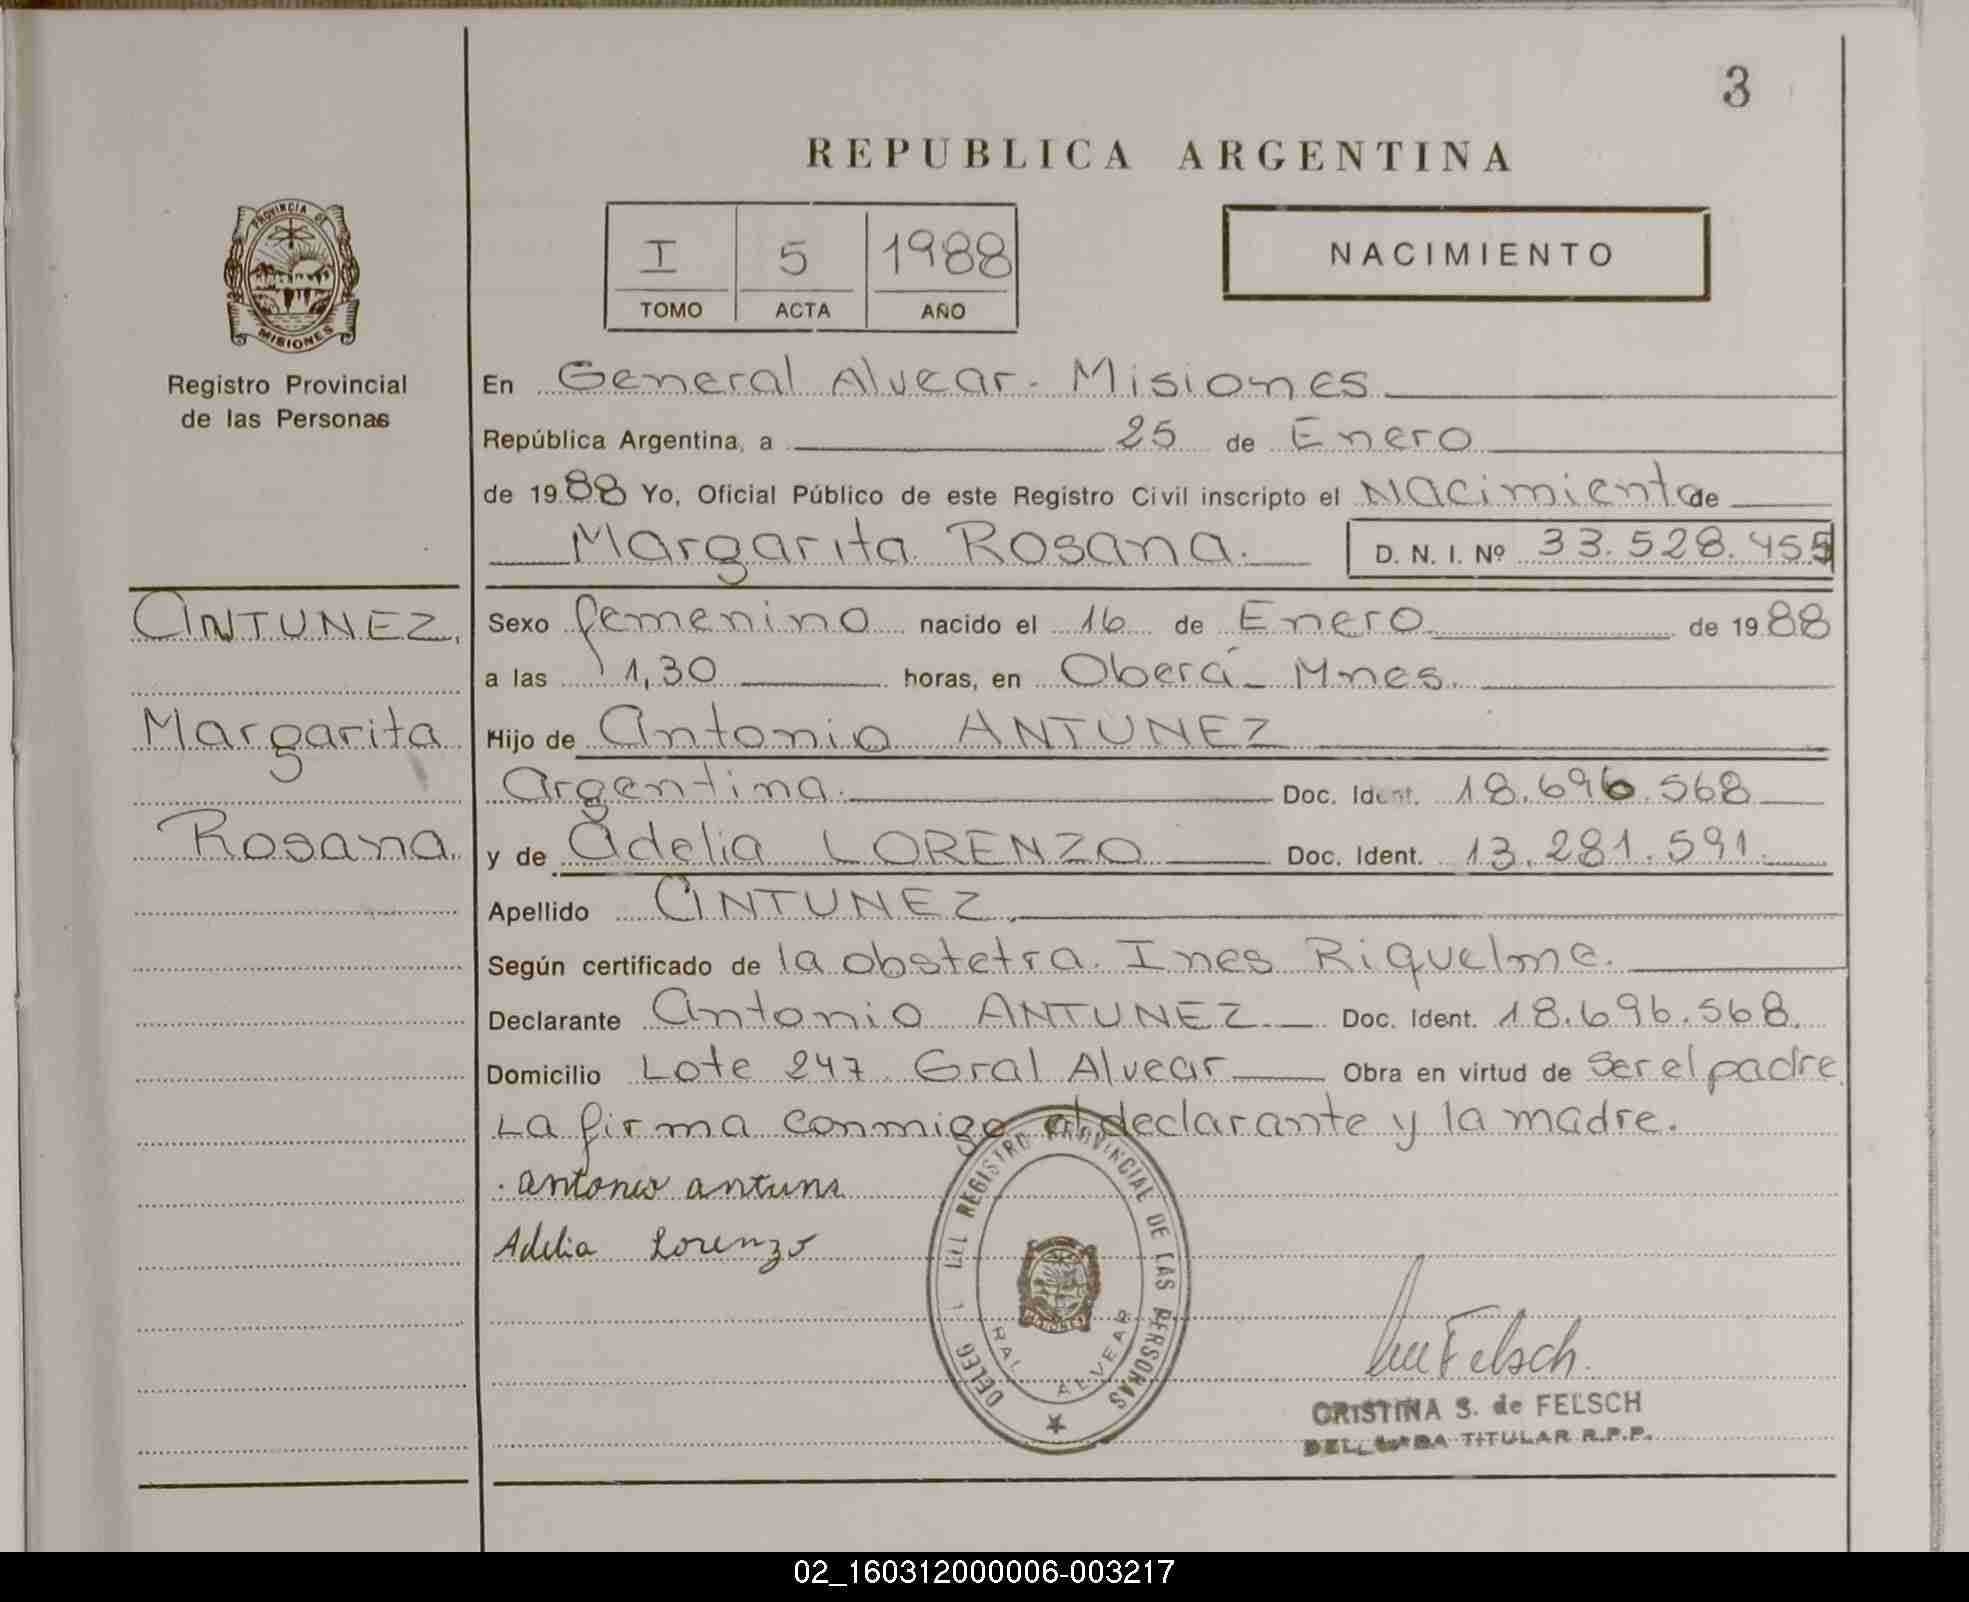 3
REPUBLICA ARGENTINA
PROVINCIA DE
MISIONES
Registro Provincial
de las Personas
I 5 1988
TOMO ACTA AÑO
NACIMIENTO
En General Alvear - Misiones
República Argentina, a 25 de Enero
de 1988 Yo, Oficial Público de este Registro Civil inscripto el Nacimiento de
Margarita Rosana. D. N. I. Nº 33.528.455
ANTUNEZ,
Margarita
Rosana.
Sexo femenino nacido el 16 de Enero de 1988
a las 1,30 horas, en Oberá - Mnes.
Hijo de Antonio ANTUNEZ
Argentina. Doc. Ident. 18.696.568
y de Adelia LORENZO Doc. Ident. 13.281.591.
Apellido ANTUNEZ.
Según certificado de la obstetra. Ines Riquelme.
Declarante Antonio ANTUNEZ. Doc. Ident. 18.696.568.
Domicilio Lote 247 Gral Alvear Obra en virtud de ser el padre
La firma conmigo el declarante y la madre.
antonio antuns
Adelia Lorenzo
DELEG DEL REGISTRO PROVINCIAL DE LAS PERSONAS
RAL ALVEAR
MISIONES
Felsch.
CRISTINA S. de FELSCH
TITULAR R.P.P.
02_160312000006-003217